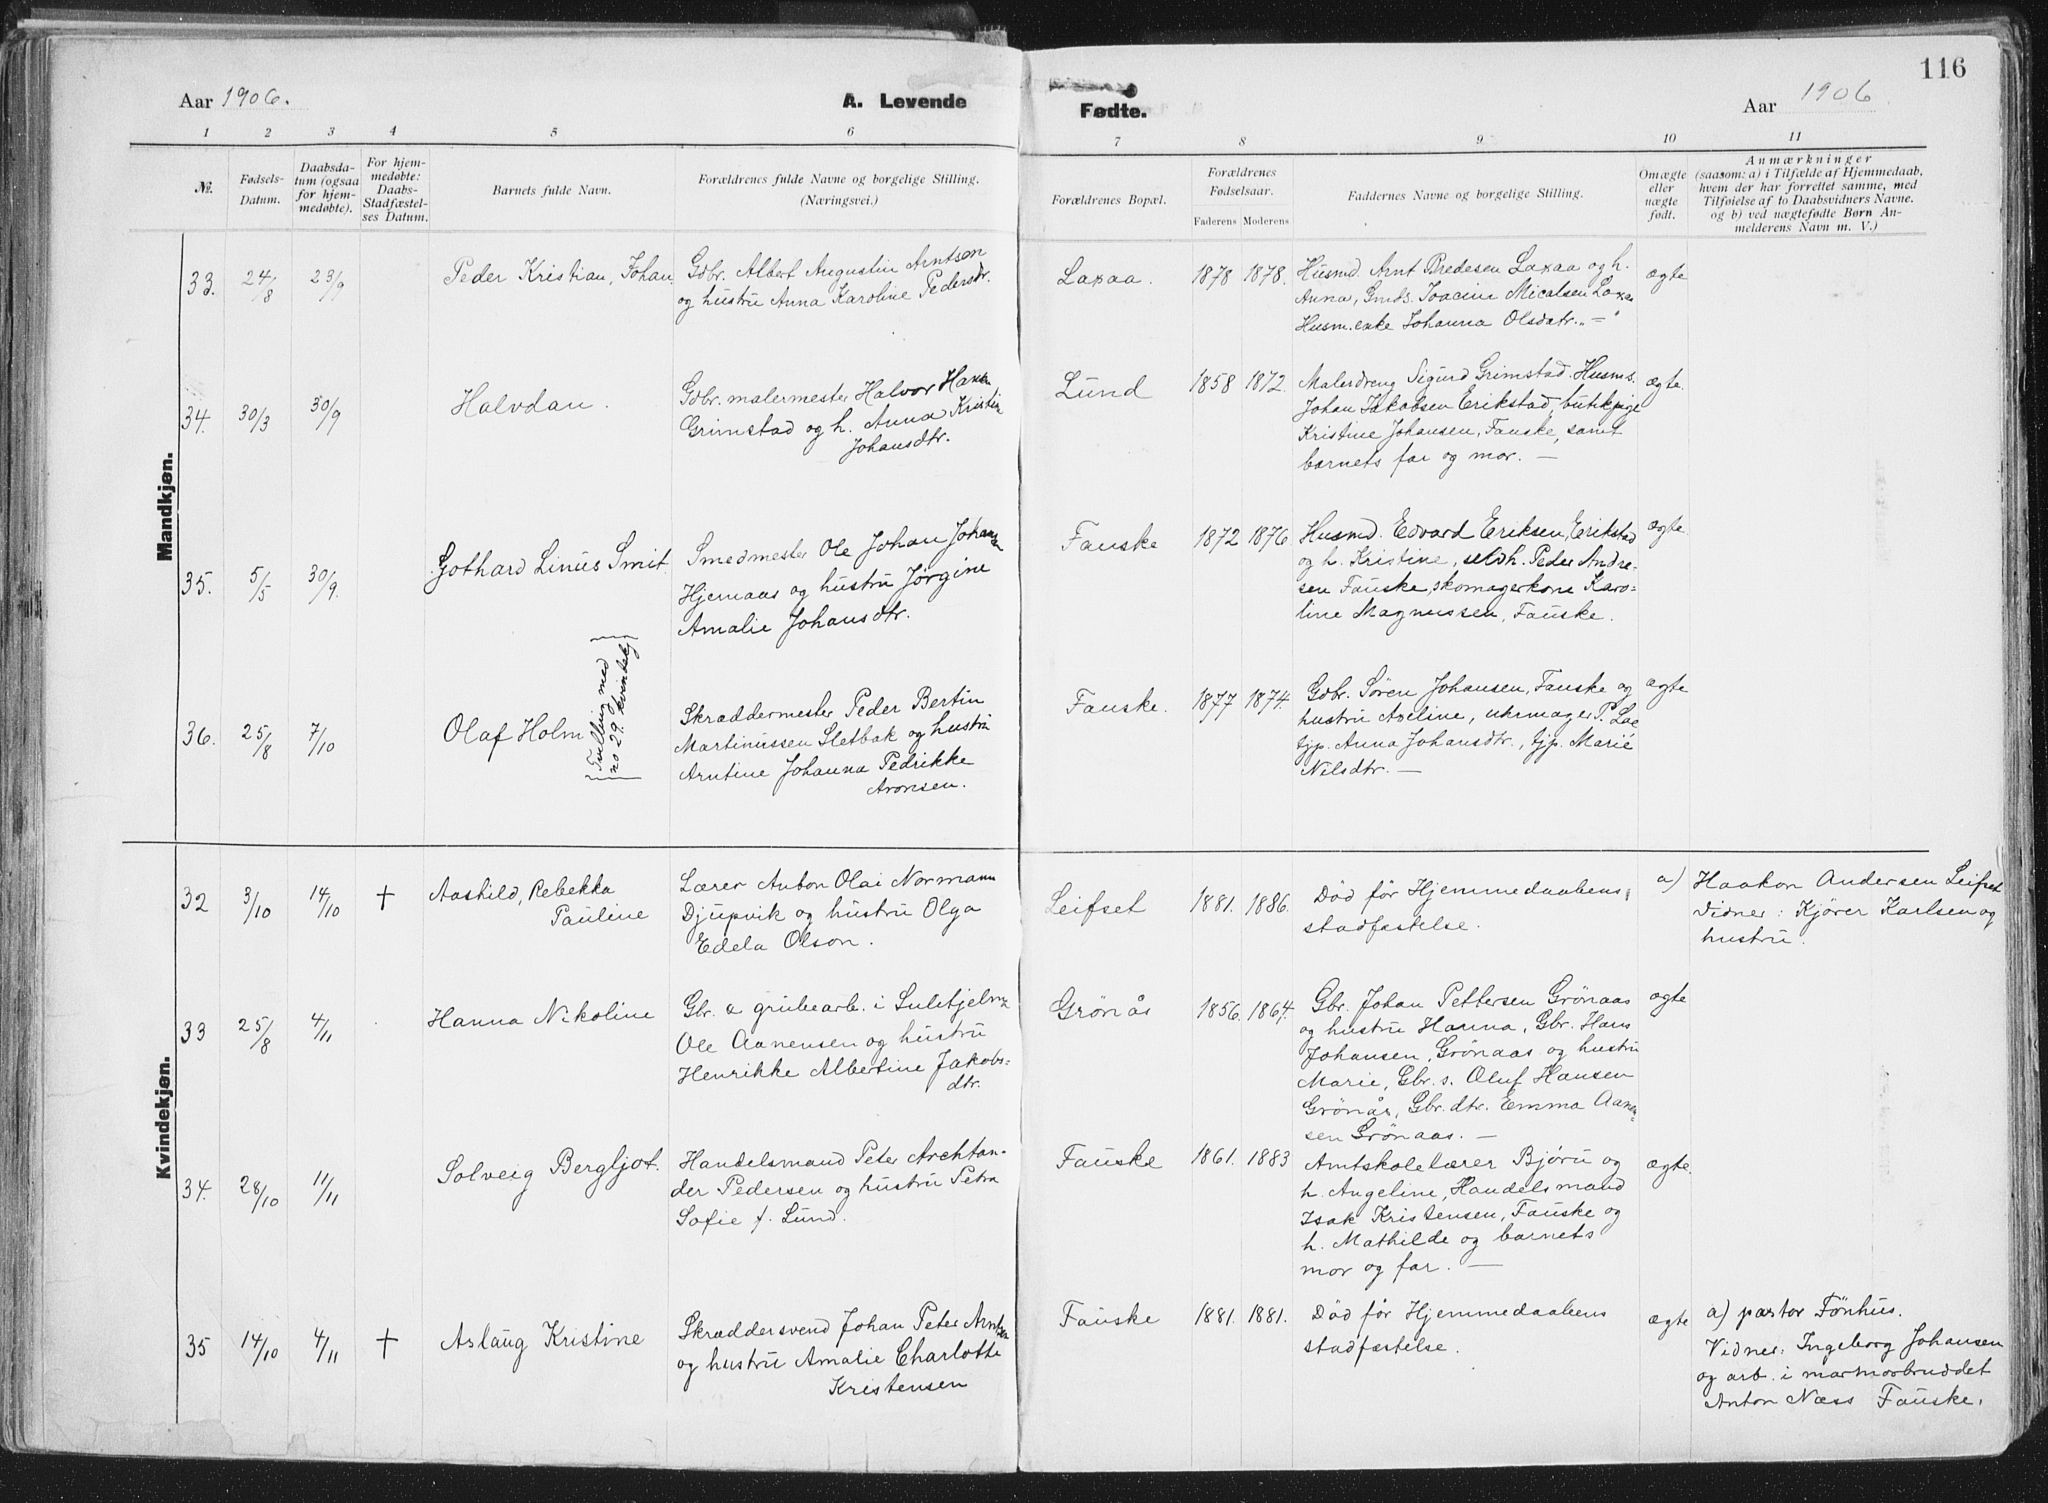 116
Aar 1906.
A. Levende
Fødte.
Aar 1906
1 2 3 4 5 6 7 8 9 10 11
№.
Fødsels-
Datum.
Daabsda-
tum (ogsaa
for hjem-
medøbte).
For hjem-
medøbte:
Daabs-
Stadfæstel-
ses Datum.
Barnets fulde Navn.
Forældrenes fulde Navne og borgelige Stilling.
(Næringsvei.)
Forældrenes Bopæl.
Forældrenes
Fødselsaar.
Faderens Moderens
Faddernes Navne og borgelige Stilling.
Omægte
eller
uægte
født.
Anmærkninger
(saasom: a) i Tilfælde af Hjemmedaab,
hvem der har forrettet samme, med
Tilføielse af to Daabsvidners Navne.
og b) ved uægtefødte Børn An-
melderens Navn m. V.)
Mandkjøn.
33. 24/8 23/9
Peder Kristian, Johan
Gdbr. Albert Augustin Arntsen
og hustru Anna Karoline Pedersdtr.
Laxaa.
1878 1878.
Husmd. Arnt Bredesen Laxaa og h.
Anna, Gmds. Joacim Micalsen Laxaa
Husm.enke Johanna Olsdatr. „ — "
ægte
34. 30/3 30/9
Halvdan.
Gdbr. malermester Halvor Hansen
Grimstad og h. Anna Kristin
Johansdtr.
Lund
1858 1872.
Malerdreng Sigurd Grimstad. Husm.s.
Johan Jakobsen Erikstad, butikpige
Kristine Johansen, Fauske, samt
barnets far og mor. —
ægte.
35. 5/5 30/9.
Gothard Linus Smit.
Smedmester Ole Johan Johansen
Hjemaas og hustru Jørgine
Amalie Johansdtr.
Fauske
1872 1876.
Husmd. Edvard Eriksen, Erikstad
og h. Kristine, seldh. Peder Andre-
sen Fauske, skomagerkone Karo=
line Magnussen, Fauske.
ægte.
36. 25/8 7/10
Olaf Holm
Tvilling med
no 29 kvindekj
Skræddermester Peder Bertin
Martinussen Sletbak og hustru
Arntine Johanna Pedrikke
Aronsen.
Fauske.
1877 1874.
Gdbr. Søren Johansen, Fauske og
hustru Aveline, uhrmager P. Lae
tjp. Anna Johansdtr., tjp. Marie
Nilsdtr. —
ægte
Kvindekjøn.
32 3/10 14/10 †
Aashild, Rebekka
Pauline
Lærer Anton Olai Normann
Djupvik og hustru Olga
Edela Olson.
Leifset
1881. 1886.
Død før Hjemmedaabens
stadfæstelse.
a) Haakon Andersen Leifset
Vidner: Kjører Karlsen og
hustru.
33 25/8 4/11
Hanna Nikoline
Gbr. & grubearb. i Sulitjelma
Ole Aanensen og hustru
Henrikke Albertine Jakobs=
dtr.
Grönås
1856. 1864.
Gbr. Johan Pettersen Grönaas
og hustru Hanna, Gbr. Hans
Johansen, Grönaas og hustru
Marie, Gbr. s. Oluf Hansen
Grönås, Gbr. dtr. Emma Aanen-
sen Grönaas. —
ægte
34. 28/10 11/11
Solveig Bergljot.
Handelsmand Peter Archtan-
der Pedersen og hustru Petra
Sofie f. Lund.
Fauske
1861. 1883
Amtskolelærer Bjøru og
h. Angeline, Handelsmand
Isak Kristensen, Fauske og
h. Mathilde og barnets
mor og far. —
ægte.
35 14/10 4/11 †
Aslaug Kristine
Skræddersvend Johan Peter Arntzen
og hustru Amalie Charlotte
Kristensen
Fauske
1881. 1881.
Død før Hjemmedaabens
stadfæstelse.
ægte
a) pastor Fönhus.
Vidner: Ingeborg Johansen
og arb. i marmorbruddet
Anton Næss Fauske.